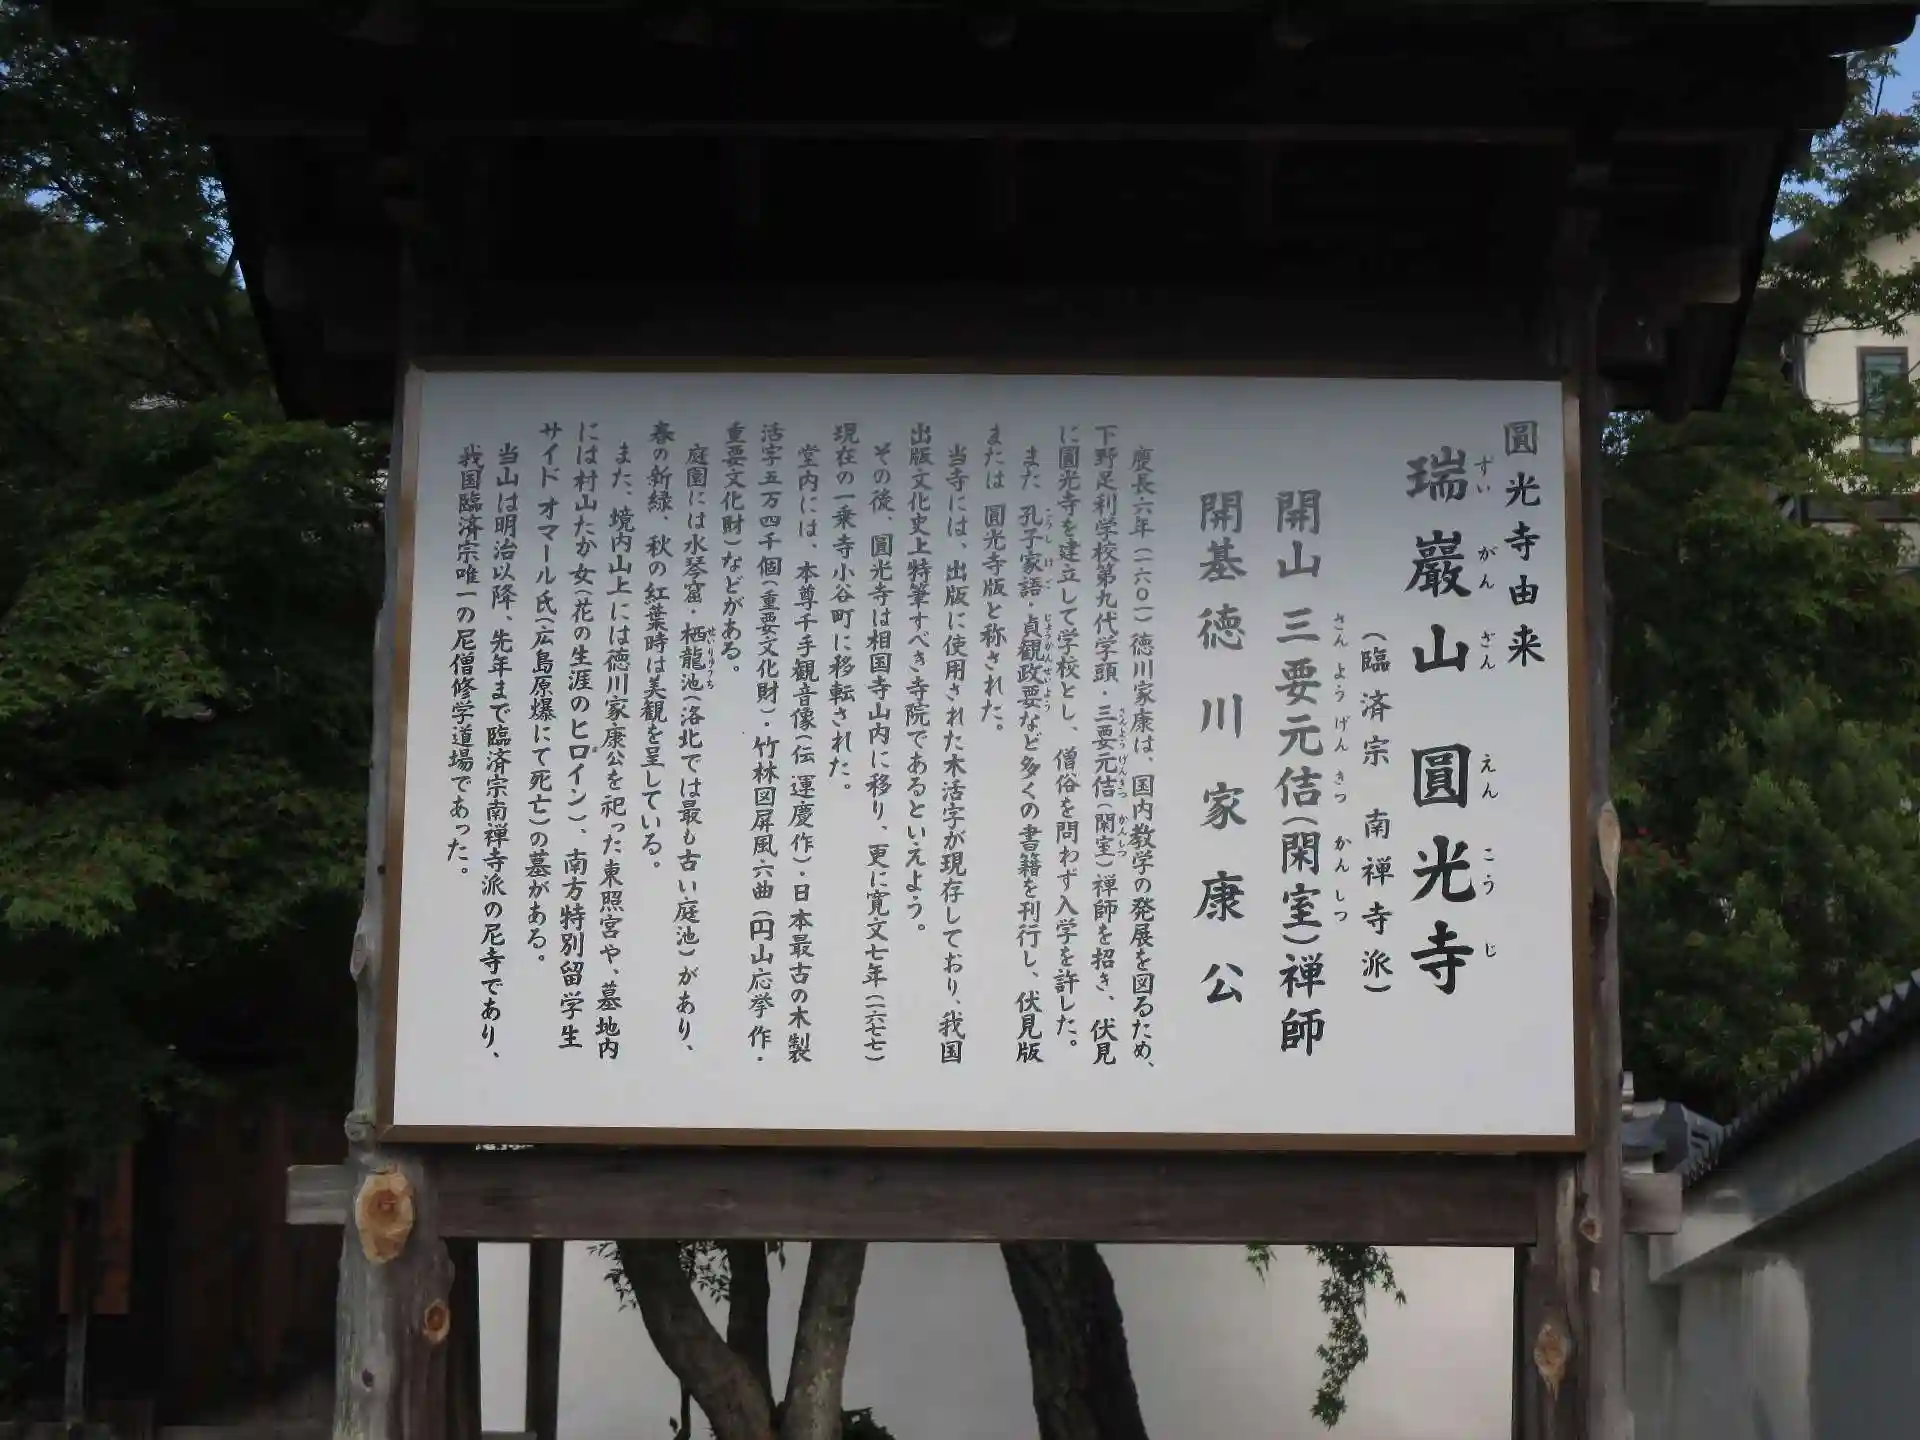 圓光寺由来
瑞巖山 圓光寺
(臨済宗 南禅寺派)
開山 三要元佶(閑室)禅師
開基 徳川家康公
慶長六年(一六〇一)徳川家康は、国内教学の発展を図るため、
下野足利学校第九代学頭・三要元佶(閑室)禅師を招き、伏見
に圓光寺を建立して学校とし、僧俗を問わず入学を許した。
また 孔子家語・貞観政要など多くの書籍を刊行し、伏見版
または 圓光寺版と称された。
当寺には、出版に使用された木活字が現存しており、我国
出版文化史上特筆すべき寺院であるといえよう。
その後、圓光寺は相国寺山内に移り、更に寛文七年(一六七七)
現在の一乗寺小谷町に移転された。
堂内には、本尊千手観音像(伝 運慶作)・日本最古の木製
活字五万四千個(重要文化財)・竹林図屏風六曲(円山応挙作・
重要文化財)などがある。
庭園には水琴窟・栖龍池(洛北では最も古い庭池)があり、
春の新緑、秋の紅葉時は美観を呈している。
また、境内山上には徳川家康公を祀った東照宮や、墓地内
には村山たか女(花の生涯のヒロイン)、南方特別留学生
サイド オマール氏(広島原爆にて死亡)の墓がある。
当山は明治以降、先年まで臨済宗南禅寺派の尼寺であり、
我国臨済宗唯一の尼僧修学道場であった。